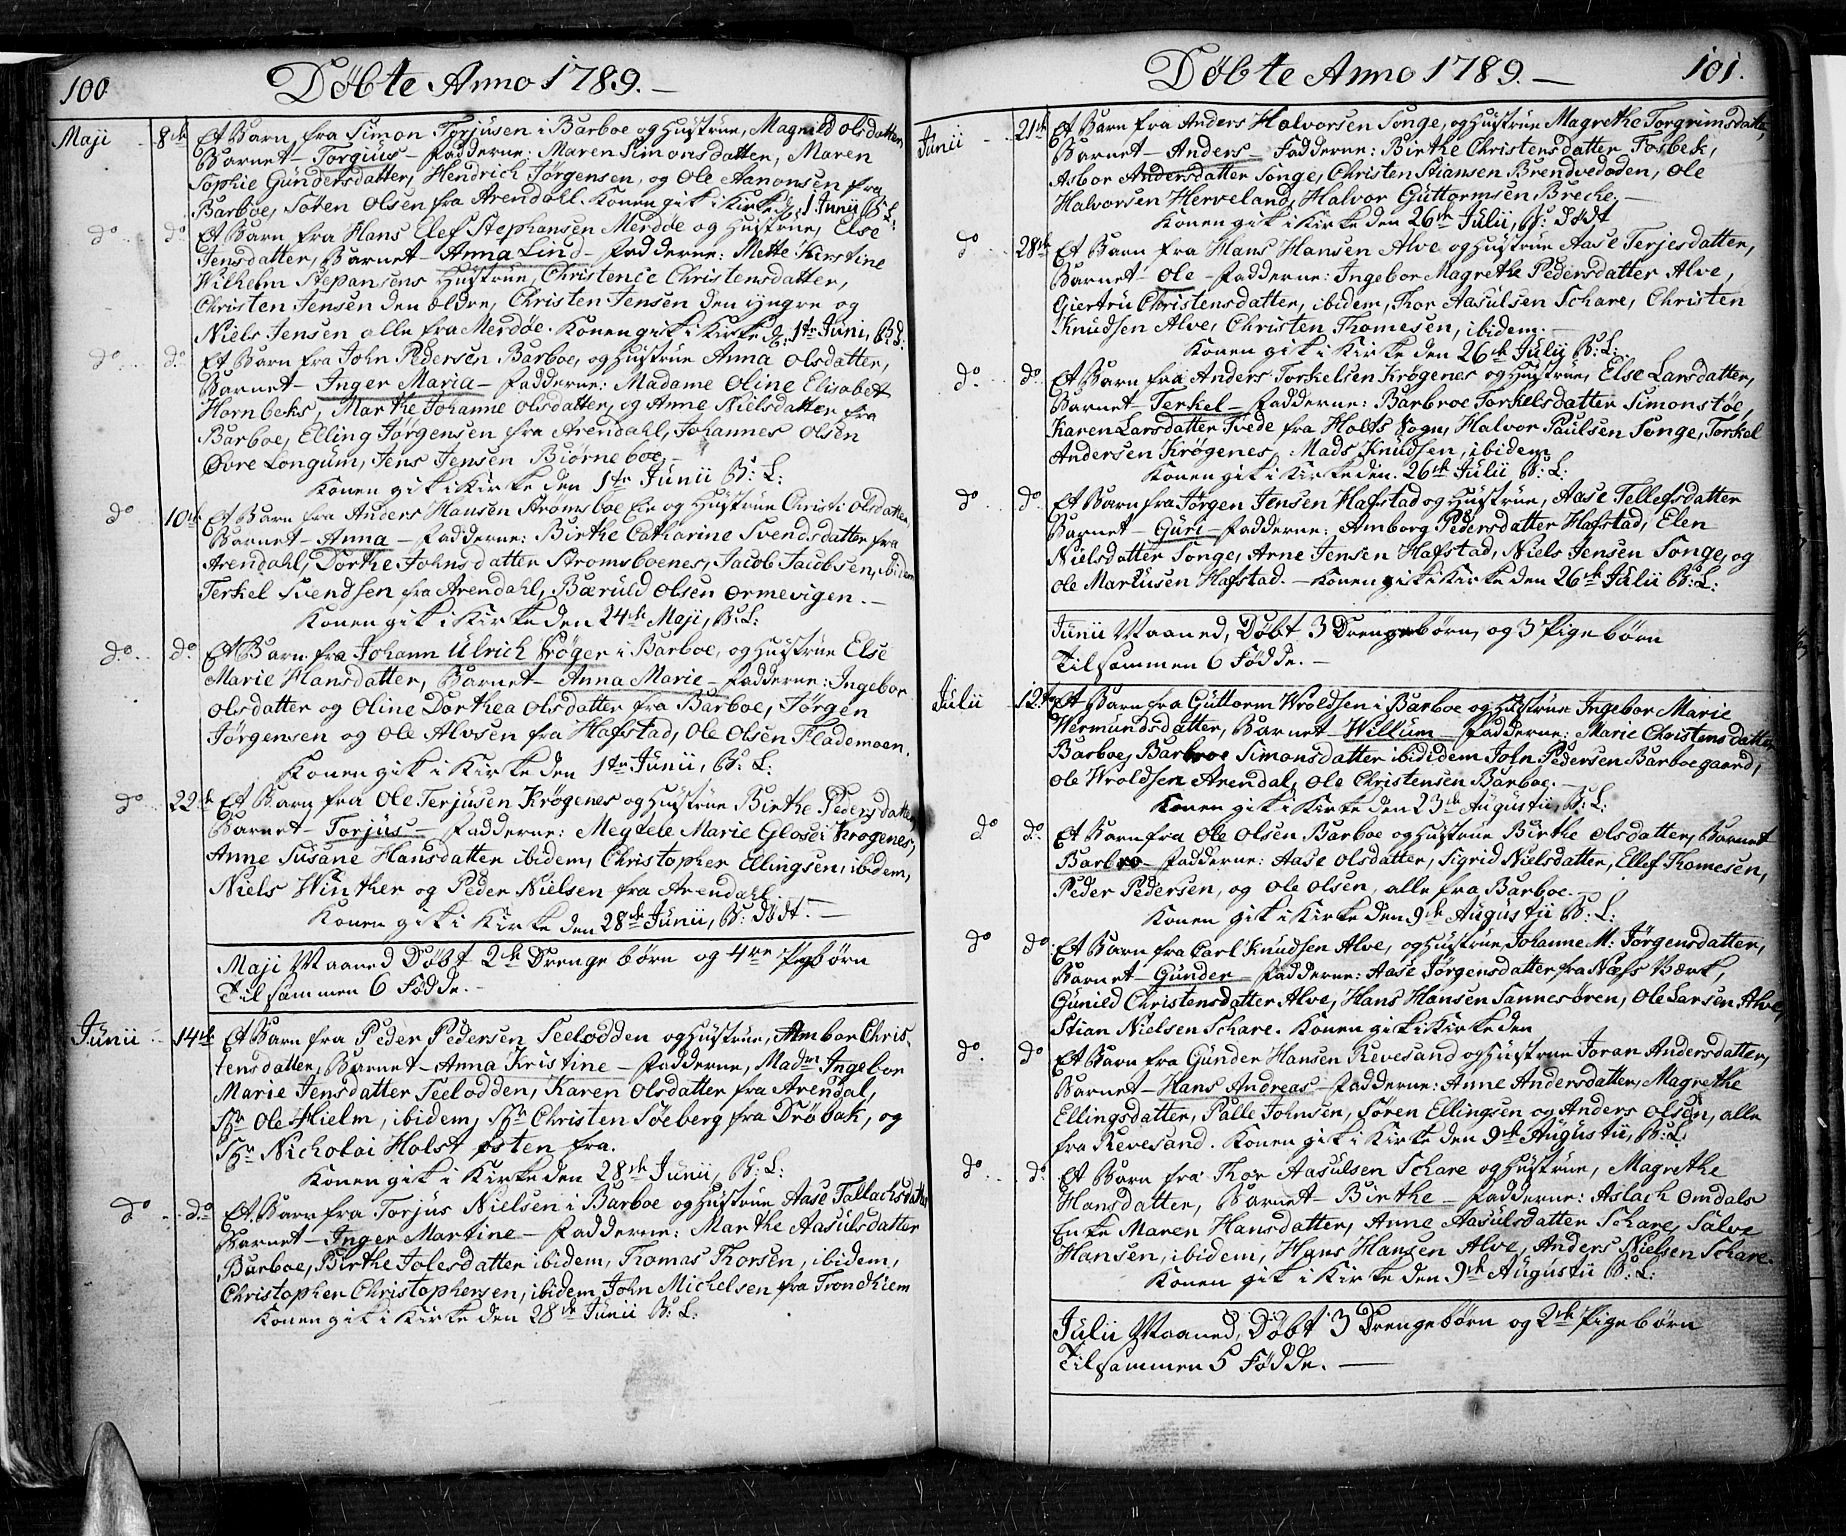 100 Döbte Anno 1789. —
Maji 8de Et Barn fra Simon Terjusen i Barboe og Hustrue, Magnild Olsdatter,
Barnet — Torgius — Fadderne: Maren Simonsdatter, Maren
Sophie Gundersdatter, Hendrich Jørgensen, og Ole Aanonsen fra
Barboe, Søren Olsen fra Arendahl. Konen gik i Kirke d. 1 Junii B: L:
do do Et Barn fra Hans Elef Stephansen Merdøe og Hustrue, Else
Jensdatter, Barnet — Anna Lind — Fadderne: Mette Kirstine
Wilhelm Stepansens Hustrue, Christence Christensdatter,
Christen Jensen den Eldre, Christen Jensen den yngre og
Niels Jensen alle fra Merdøe. Konen gik i Kirke d. 1te Juni, B: d:
do do Et Barn fra John Pedersen Barboe, og Hustrue Anna Olsdatter,
Barnet — Inger Maria — Fadderne: Madame Oline Elisabet
Hornbeks, Marthe Johanne Olsdatter, og Anne Nielsdatter fra
Barboe, Elling Jørgensen fra Arendahl, Johannes Olsen
Øvre Longum, Jens Jensen Biørneboe,
Konen gik i Kirke den 1te Junii B: L:
do 10de Et Barn fra Anders Hansen Strømsboe Eie og Hustrue Christi Olsdatter,
Barnet — Anna — Fadderne: Birthe Catharine Svendsdatter fra
Arendahl, Dorthe Johnsdatter Strømsboenes, Jacob Jacobsen, ibidem
Terkel Svendsen fra Arendahl, Bæruld Olsen Ormevigen. —
Konen gik i Kirke den 24de Maji, B: L:
do do Et Barn fra Johann Ulrich Krøger i Barboe, og Hustrue Else
Marie Hansdatter, Barnet — Anna Marie — Fadderne: Ingebor
Olsdatter og Oline Dorthea Olsdatter fra Barboe, Jørgen
Jørgensen og Ole Alvsen fra Hafstad, Ole Olsen Flademoen,
Konen gik i Kirke den 1te Junii, B: L:
do 22de Et Barn fra Ole Terjusen Krøgenes og Hustrue Birthe Pedersdatter,
Barnet — Torjus — Fadderne: Meydele Marie Glose: Krøgenes,
Anne Susane Hansdatter ibidem, Christopher Ellingsen, ibidem,
Niels Winther og Peder Nielsen fra Arendahl
Konen gik i Kirke den 28de Junii, B: Dödt. —
Maji Maaned Döbt 2de Drenge börn og 4re Pigbörn
Tilsammen 6 Födde. —
Junii 14de Et Barn fra Peder Pedersen Teelodden og Hustrue, Ambor Chris-
tensdatter, Barnet — Anna Kristine — Fadderne, Madm Ingebor
Marie Jensdatter Teelodden, Karen Olsdatter fra Arendal,
Sr Ole Hielm, ibidem, Sr Christen Söeberg fra Dröbak, og
Sr Nicholai Holst østen fra.
Konen gik i Kirke den 28de Junii, B: L:
do do Et Barn fra Torjus Nielsen i Barboe og Hustrue Aase Tallachsdatter
Barnet — Inger Martine — Fadderne: Marthe Aasulsdatter
Barboe, Birthe Jolesdatter ibidem, Thomas Thorsen, ibidem,
Christopher Christophersen, ibidem, John Michelsen fra Trondhiem
Konen gik i Kirke den 28de Junii B: L:
Döbte Anno 1789. — 101.
Junii 21de Et Barn fra Anders Halvorsen Songe, og Hustrue Magrethe Torgrimsdatter,
Barnet — Anders — Fadderne: Birthe Christensdatter Fosbek,
Asbor Andersdatter Songe, Christen Stiansen Brendvedoden, Ole
Halvorsen Herveland, Halvor Guttormsen Breche. —
Konen gik i Kirke den 26de Julii, B: Dödt
do 28de Et Barn fra Hans Hansen Alve og Hustrue Aase Terjesdatter,
Barnet — Ole — Fadderne: Ingebor Magrethe Pedersdatter Alve,
Giertru Christensdatter, ibidem, Thor Aasulsen Schare, Christen
Knudsen Alve, Christen Thomesen, ibidem. —
Konen gik i Kirke den 26de Julii B: L:
do do Et Barn fra Anders Torkelsen Krøgenes og Hustrue, Else Larsdatter,
Barnet — Terkel — Fadderne: Barbroe Torkelsdatter Simonstøe,
Karen Larsdatter Tvede fra Holts Sogn, Halvor Paulsen Songe, Torkel
Andersen Krøgenes, Mads Knudsen, ibidem
Konen gik i Kirke den 26de Julii B: L:
do do Et Barn fra Jørgen Jensen Hafstad og Hustrue, Aase Tellefsdatter
Barnet — Guri — Fadderne: Amborg Pedersdatter Hafstad, Elen
Nielsdatter Songe, Arne Jensen Hafstad, Niels Jensen Songe, og
Ole Markusen Hafstad. — Konen gik i Kirke den 26de Julii B: L:
Junii Maaned, Döbt 3 Drengebörn, og 3 Pigebörn
Tilsammen 6 Födde. —
Julii 12te Et Barn fra Guttorm Wroldsen i Barboe og Hustrue Ingebor Marie
Wermundsdatter, Barnet — Willum — Fadderne: Marie Christensdatter
Barboe, Barbroe Simonsdatter ibidem John Pedersen Barboegaard,
Ole Wroldsen Arendal, Ole Christensen Barboe. —
Konen gik i Kirke den 23de Augustii, B: L:
do do Et Barn fra Ole Olsen Barboe og Hustrue Birthe Olsdatter, Barnet
Barbro — Fadderne: Aase Olsdatter, Sigrid Nielsdatter, Ellef Thomesen,
Peder Pedersen, og Ole Olsen, alle fra Barboe. —
Konen gik i Kirke den 9de Augustii B: L:
do do Et Barn fra Carl Knudsen Alve, og Hustrue, Johanne M: Jørgensdatter,
Barnet — Gunder — Fadderne: Aase Jørgensdatter fra Næs Værk,
Gunild Christensdatter Alve, Hans Hansen Sannesøren, Ole Larsen Alve,
Stian Nielsen Schare. Konen gik i Kirke den
do do Et Barn fra Gunder Hansen Revesand og Hustrue Joran Andersdatter,
Barnet — Hans Andreas — Fadderne: Anne Andersdatter, Magrethe
Ellingsdatter, Palle Johnsen, Søren Ellingsen og Anders Olsen, alle
fra Revesand. Konen gik i Kirke den 9de Augustii, B: L:
do do Et Barn fra Thor Aasulsen Schare og Hustrue, Magrethe
Hansdatter, Barnet — Birthe — Fadderne: Aslach Omdals
Enke Maren Hansdatter, Anne Aasulsdatter Schare, Salve
Hansen, ibidem, Hans Hansen Alve, Anders Nielsen Schare.
Konen gik i Kirke den 9de Augustii B: L:
Julii Maaned, Döbt 3 Drengebörn og 2de Pigebörn
Tilsammen 5 Födde. —